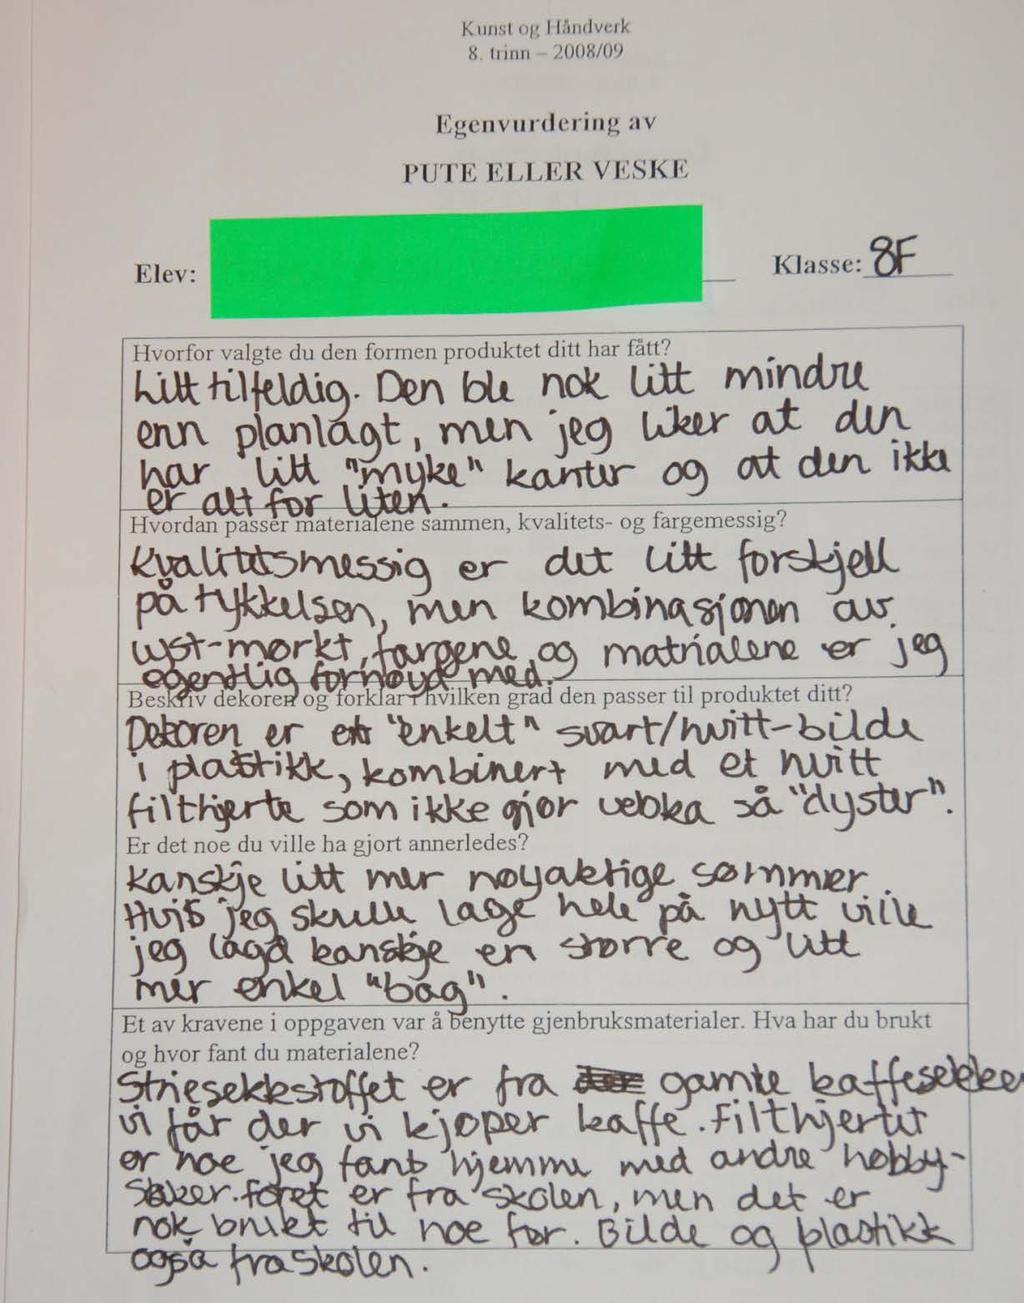 Kunst og Håndverk
8. trinn – 2008/09
Egenvurdering av
PUTE ELLER VESKE
Elev:
Klasse: 8F
Hvorfor valgte du den formen produktet ditt har fått?
Litt tilfeldig. Den ble nok litt mindre
enn planlagt, men jeg liker at den
har litt "myke" kanter og at den ikke
er alt for liten.
Hvordan passer materialene sammen, kvalitets- og fargemessig?
Kvalitetsmessig er det litt forskjell
på tykkelsen, men kombinasjonen av
lyst-mørkt, fargene og matrialene er jeg
egentlig fornøyd med.
Beskriv dekoren og forklar i hvilken grad den passer til produktet ditt?
Dekoren er et "enkelt" svart/hvitt-bilde
i plastikk, kombinert med et hvitt
filthjerte som ikke gjør veska så "dyster".
Er det noe du ville ha gjort annerledes?
Kanskje litt mer nøyaktige sømmer.
Hvis jeg skulle lage hele på nytt ville
jeg lagd kanskje en større og litt
mer enkel "bag".
Et av kravene i oppgaven var å benytte gjenbruksmaterialer. Hva har du brukt
og hvor fant du materialene?
Striesekkstoffet er fra gamle kaffesekker
vi får der vi kjøper kaffe. Filthjertet
er noe jeg fant hjemme med andre hobby-
saker. fôret er fra skolen, men det er
nok brukt til noe før. Bilde og plastikk
også fra skolen.